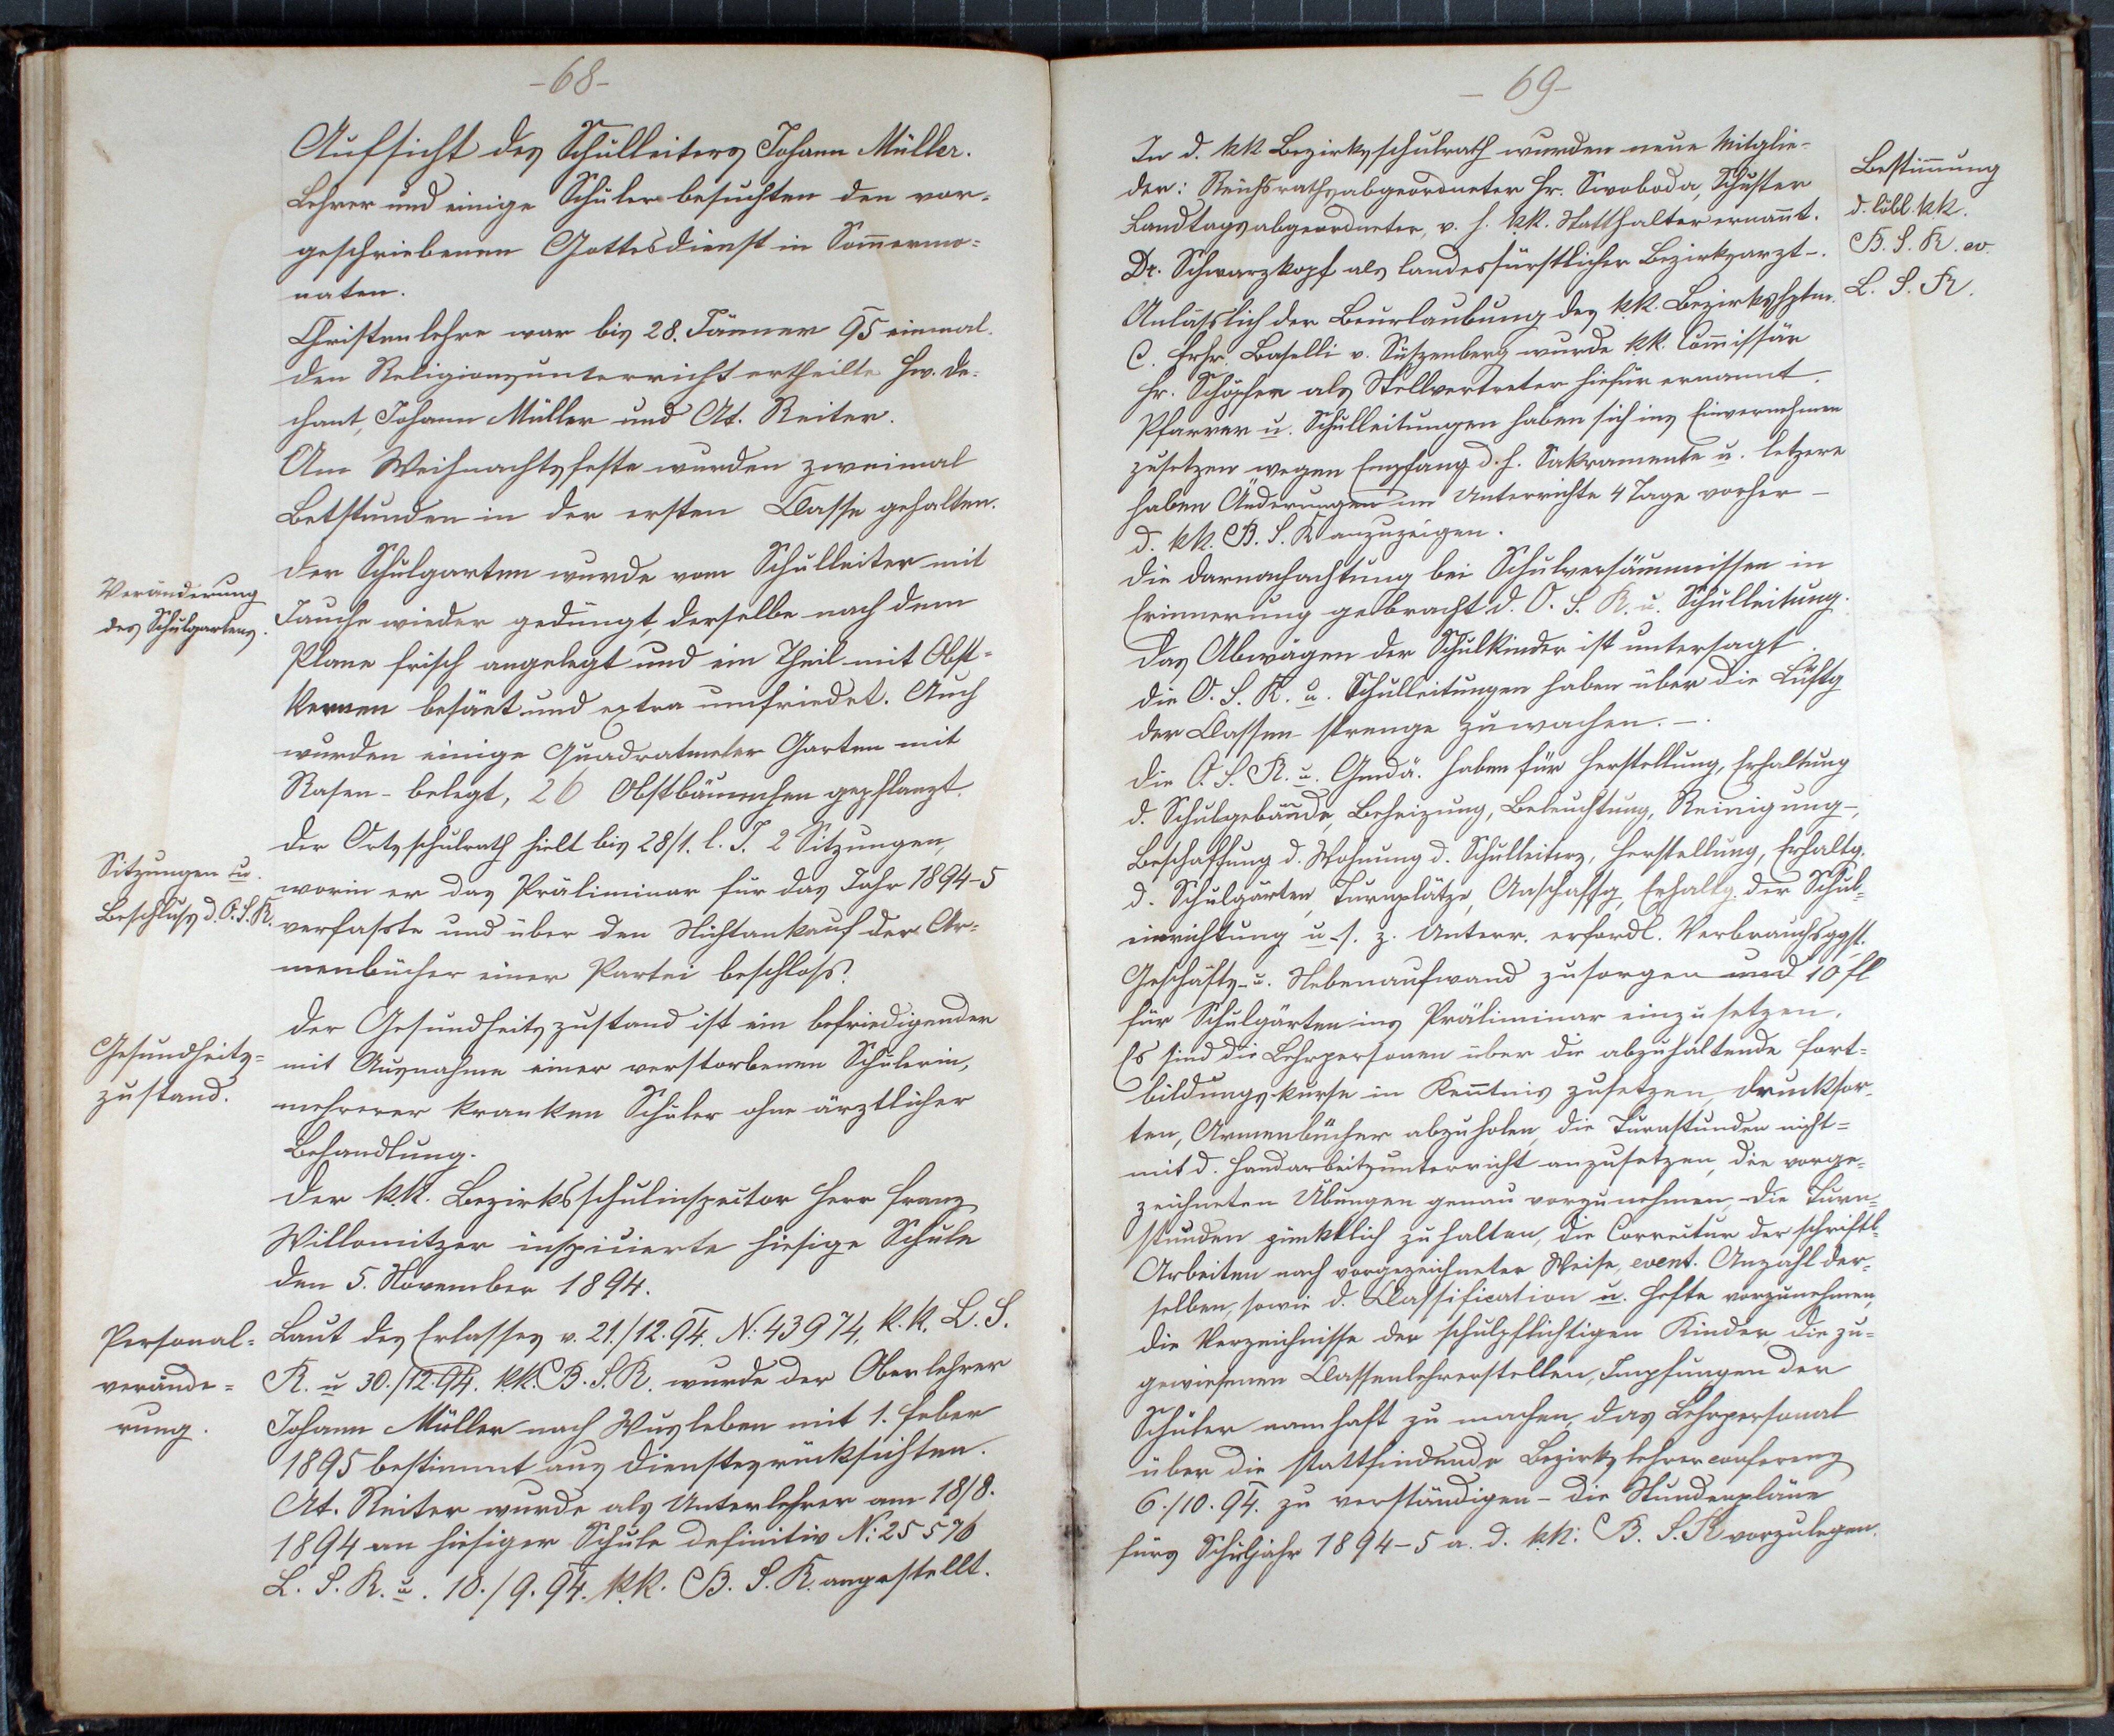 -68-
Aufsicht des Schulleiters Johann Müller.
Lehrer und einige Schüler besuchten den vor-
geschriebenen Gottesdienst in Sommermo-
naten.
Christenlehre war bis 28. Jänner 95 einmal.
Den Religionsunterricht ertheilte Hw. De-
chant, Johann Müller und At. Reiter.
Am Weihnachtsfeste wurden zweimal
Betstunden in der ersten Classe gehalten.
Veränderung
des Schulgartens.
Der Schulgarten wurde vom Schulleiter mit
Jauche wieder gedüngt, derselbe nach dem
Plane frisch angelegt und ein Theil mit Obst-
kernen besäet und extra umfriedet. Auch
wurden einige Quadratmeter Garten mit
Rasen- belegt, 26 Obstbäumchen gepflanzt.
Sitzungen u.
Beschluss d. O.S.R.
Der Ortsschulrath hielt bis 28/1. l. J. 2 Sitzungen,
worin er das Präliminar für das Jahr 1894-5
verfasste und über den Nichtankauf der Ar-
menbücher einer Partei beschloss.
Gesundheits-
zustand.
Der Gesundheitszustand ist ein befriedigender
mit Ausnahme einer verstorbenen Schülerin,
mehrerer kranken Schüler ohne ärztlicher
Behandlung.
Der k.k. Bezirksschulinspector Herr Franz
Willomitzer inspicierte hiesige Schule
den 5. November 1894.
Personal-
verände-
rung.
Laut des Erlasses v. 21./12.94. N: 43974, k.k. L.S.
R. u 30./12.94. k.k. B.S.R. wurde der Oberlehrer
Johann Müller nach Wusleben mit 1. Feber
1895 bestimmt aus Diensteyrücksichten.
At. Reiter wurde als Unterlehrer am 18/8.
1894 an hiesiger Schule definitiv N: 25576
L.S.R. u. 10./9.94. k.k. B.S.R. angestellt.
-69-
Bestimmung
d. löbl. k.k.
B.S.R. ev.
L.S.R.
In d. kk. Bezirksschulrath wurden neue Mitglie-
der: Reichsrathsabgeordneter Hr. Swoboda, Schuster
Landtagsabgeordneter, v. h. k.k. Statthalter ernannt.
Dr. Schwarzkopf als landesfürstlicher Bezirksarzt-.
Anlässlich der Beurlaubung des k.k. Bezirkshptm.
C. Frhr. Baselli v. Süszenberg wurde k.k. Commissär
Hr. Schöpfer als Stellvertreter hiefür ernannt.
Pfarrer u. Schulleitungen haben sich ins Einvernehmen
zusetzen wegen Empfang d. h. Sakramente u. letzere
haben Änderungen im Unterrichte 4 Tage vorher -
d. kk. B.S.R anzuzeigen.
Die Darnachachtung bei Schulversäumnissen in
Erinnerung gebracht d. O.S.R. u. Schulleitung.
Das Abwägen der Schulkinder ist untersagt.
Die O.S.R. u. Schulleitungen haben über die Lüftg
der Classen strenge zuwachen. -.
Die O.S.R. u. Gmdä. haben für Herstellung, Erhaltung
d. Schulgebäude, Beheizung, Beleuchtung, Reinigung-,
Beschaffung d. Wohnung d. Schulleiters, Herstellung, Erhaltg.
d. Schulgärten, Turnplätze, Anschaffg, Erhaltg. der Schul-
einrichtung u. s. z. Unterr. erfordl. Verbrauchsggst.
Geschäfts- u. Nebenaufwand zusorgen und 10 fl
für Schulgärten ins Präliminar einzusetzen.
Es sind die Lehrpersonen über die abzuhaltende Fort-
bildungskurse in Kenntnis zusetzen, Drucksor-
ten, Armenbücher abzuholen, die Turnstunden nicht-
mit d. Handarbeitsunterricht anzusetzen, die vorge-
zeichneten Übungen genau vorzunehmen, die Turn-
stunden pünktlich zu halten, die Correctur der schriftl.
Arbeiten nach vorgezeichneter Weise, event. Anzahl der-
selben, sowie d. Classification u. Hefte vorzunehmen,
die Verzeichnisse der schulpflichtigen Kinder, die zu-
gewiesenen Classenlehrerstellen, Impfungen der
Schüler namhaft zu machen, das Lehrpersonal
über die stattfindende Bezirkslehrerconferenz
6./10.94. zu verständigen- die Stundenpläne
fürs Schuljahr 1894-5 a. d. k.k: B.S.R vorzulegen.